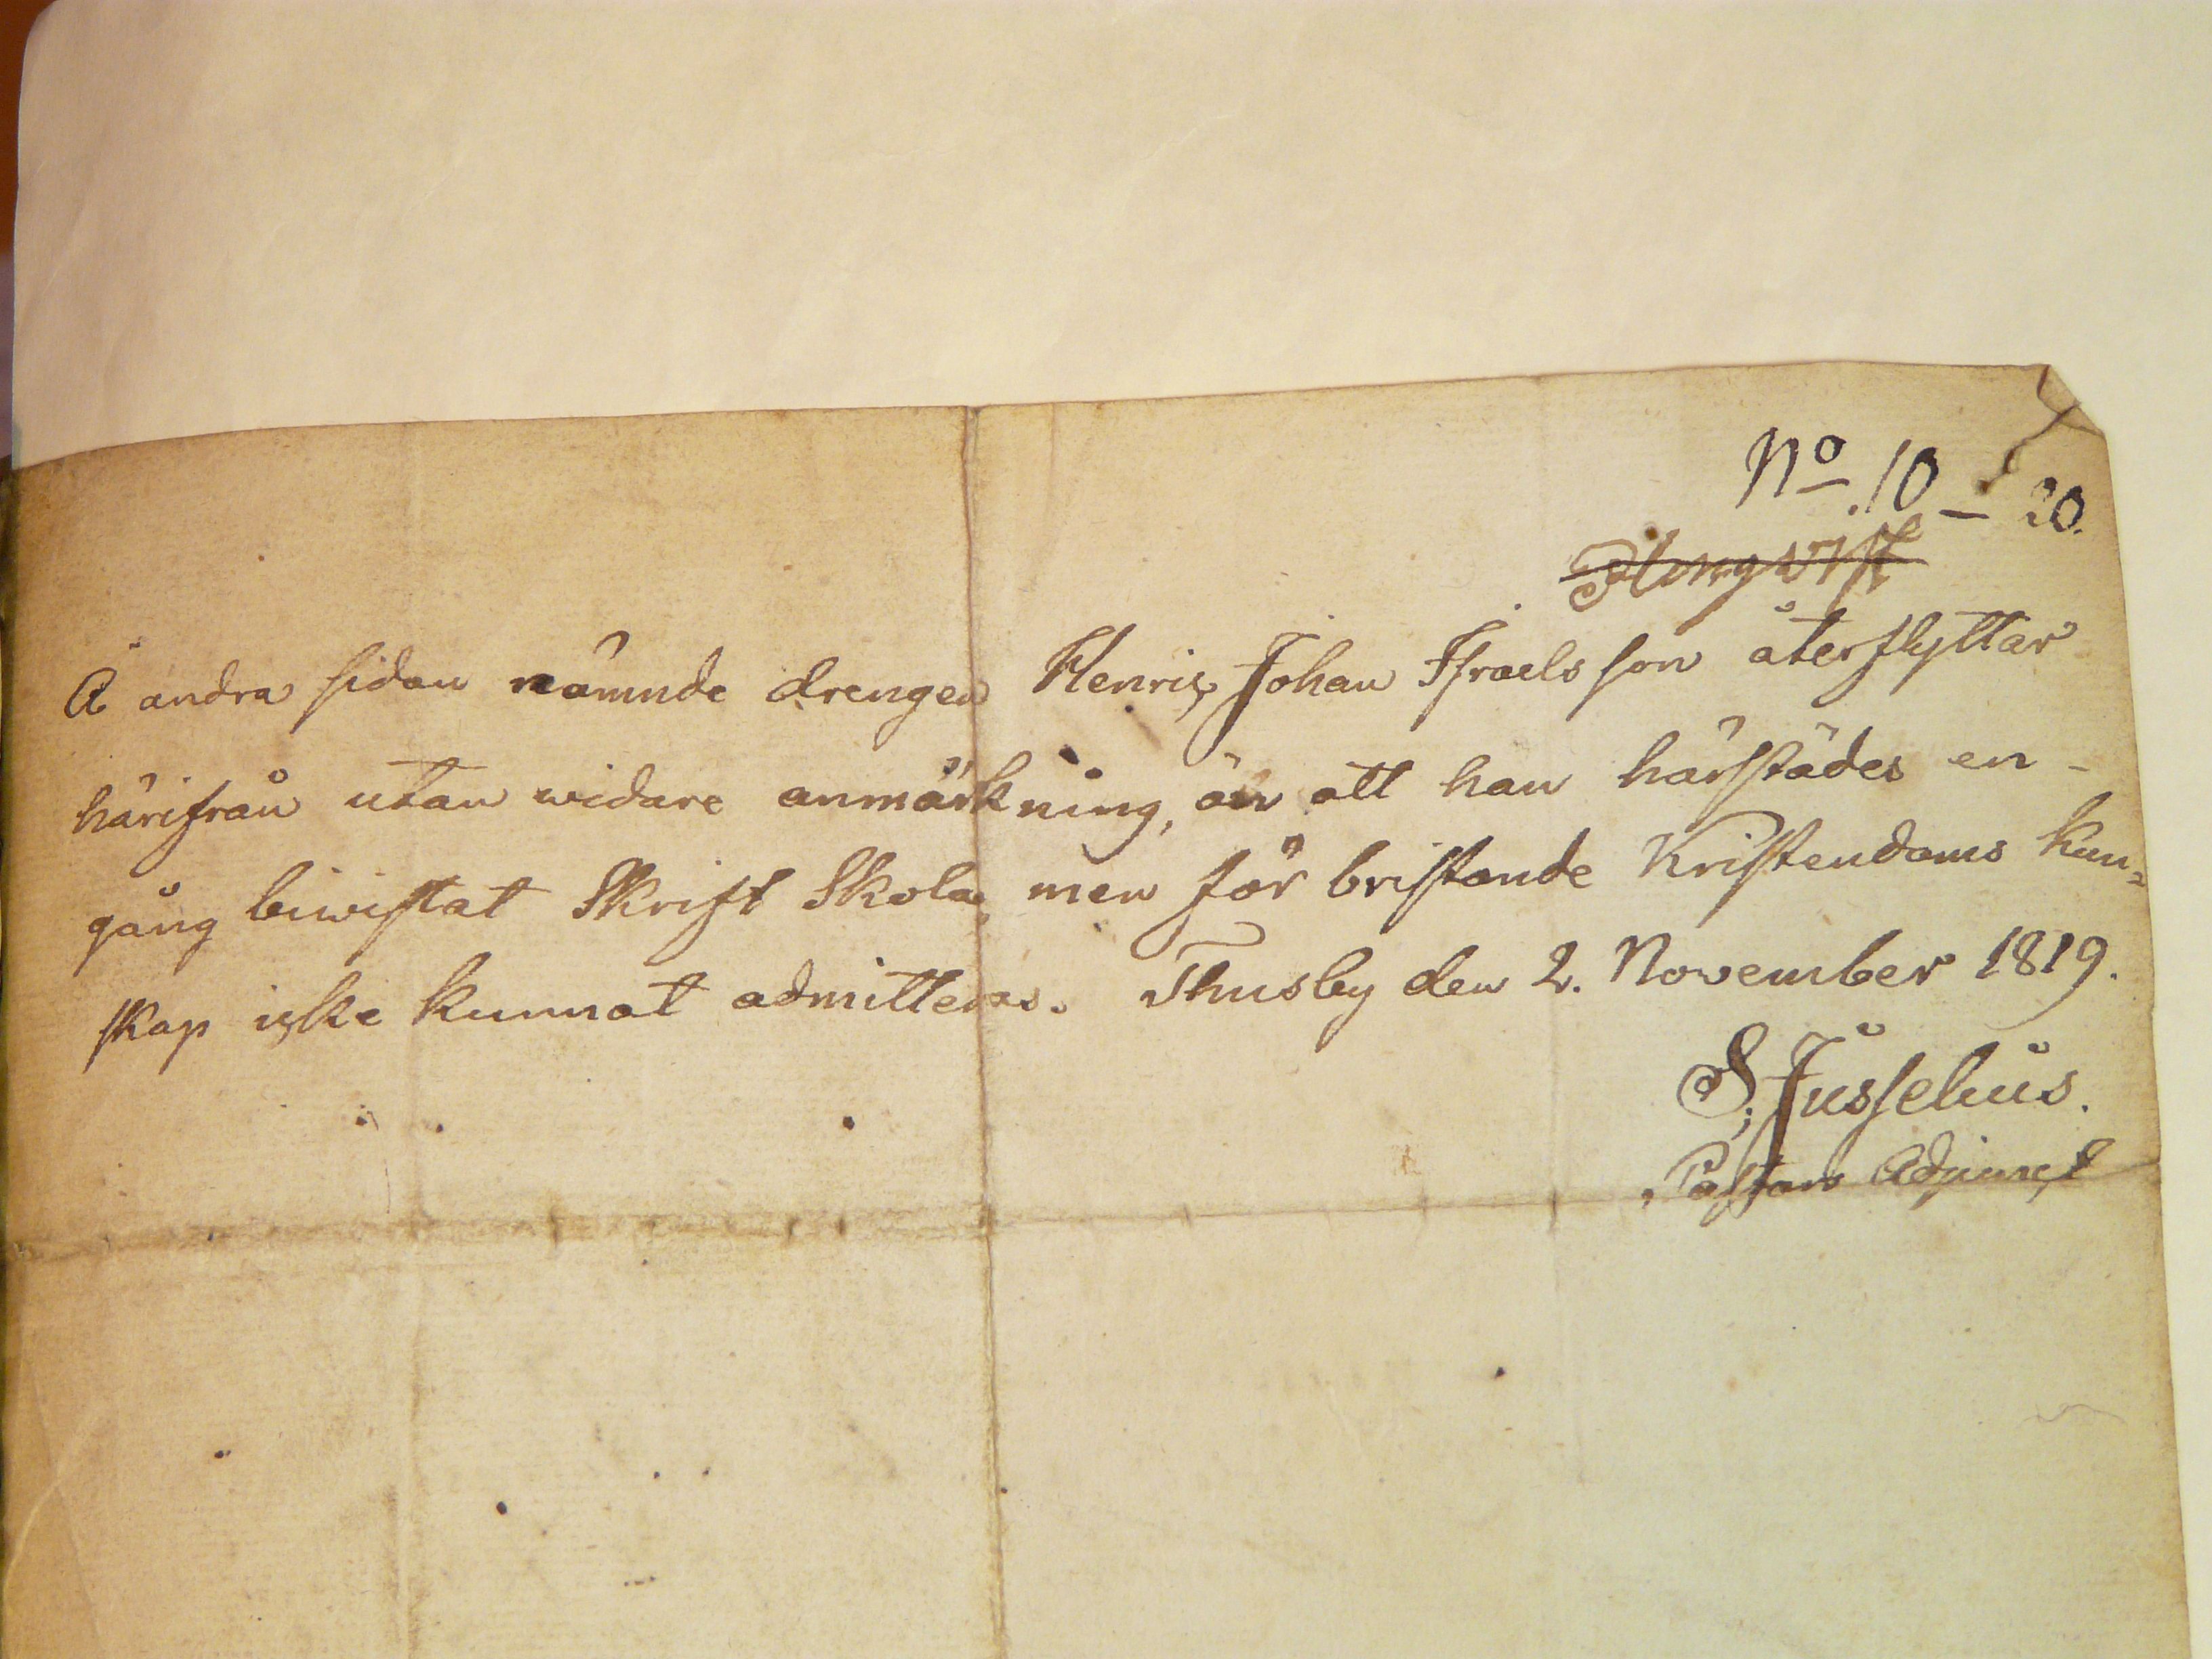 No. 10 – 20.
Å andra sidan nämnde drengen Henric Johan Israelsson återflyttar
härifrån utan widare anmärkning, än att han härstädes en-
gång biwistat Skrift Skola, men för bristande Kristendoms kun=
skap icke kunnat admitteras. Thusby den 2. November 1819.
S. Jusselius.
Pastors Adjunct